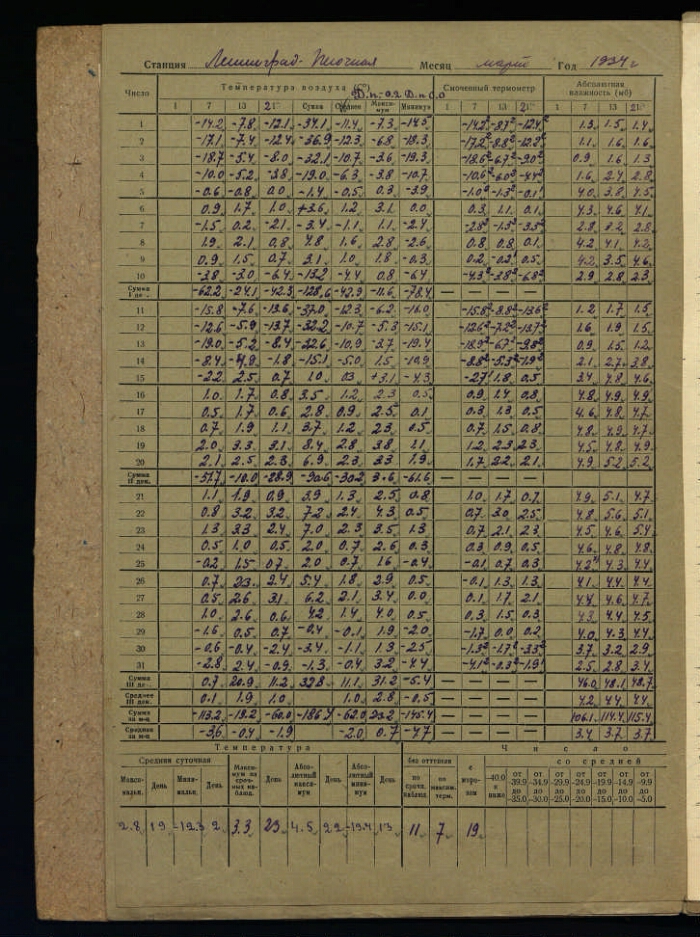 Станция Ленинград- Месяц март Год 1934 г
Число Температура воздуха Смоченный термометр Абсолютная влажность (мб)
1 7 13 21 Сумма Среднее Максимум Минимум 1 7 13 21 1 7 13 21
1 -14.2 -7.8 -12.1 -34.1 -11.4 -7.3 -14.5 -14.2 -8.7 -12.4 1.3 1.5 1.4
2 -17.1 -7.4 -12.4 -36.9 -12.3 -6.8 -19.3 -17.2 -8.8 -12.8 1.1 1.6 1.6
3 -18.7 -5.4 -8.0 -32.1 -10.7 -3.6 -19.3 -18.6 -6.7 -9.0 0.9 1.6 1.3
4 -10.0 -5.2 -3.8 -19.0 -6.3 -3.8 -10.7 -10.6 -6.0 -4.4 1.6 2.4 2.8
5 -0.6 -0.8 0.0 -1.4 -0.5 0.3 -3.9 -1.0 -1.3 -0.1 4.0 3.8 4.5
6 0.9 1.7 1.0 +3.6 1.2 3.1 0.0 0.3 1.1 0.1 4.3 4.6 4.1
7 -1.5 0.2 -2.1 -3.4 -1.1 1.1 -2.4 -2.8 -1.3 -3.5 2.8 3.2 2.8
8 1.9 2.1 0.8 4.8 1.6 2.8 -2.6 0.8 0.8 0.1 4.2 4.1 4.2
9 0.9 1.5 0.7 3.1 1.0 1.8 -0.3 0.2 -0.2 0.5 4.2 3.5 4.6
10 -3.8 -3.0 -6.4 -13.2 -4.4 0.8 -6.4 -4.3 -3.8 -6.8 2.9 2.8 2.3
Сумма I де -62.2 -24.1 -42.3 -128.6 -42.9 -11.6 -78.4 —
11 -15.8 -7.6 -13.6 -37.0 -12.3 -6.2 -16.0 -15.8 -8.8 -13.6 1.2 1.7 1.5
12 -12.6 -5.9 -13.7 -32.2 -10.7 -5.3 -15.1 -12.6 -7.2 -13.7 1.6 1.9 1.5
13 -19.0 -5.2 -8.4 -32.6 -10.9 -3.7 -19.4 -18.9 -6.7 -9.8 0.9 1.5 1.2
14 -8.4 -4.9 -1.8 -15.1 -5.0 1.5 -10.9 -8.8 -5.3 -1.9 2.1 2.7 3.8
15 -2.2 2.5 0.7 1.0 0.3 +3.1 -4.3 -2.7 1.8 0.5 3.4 4.8 4.6
16 1.0 1.7 0.8 3.5 1.2 2.3 0.5 0.9 1.4 0.8 4.8 4.9 4.9
17 0.5 1.7 0.6 2.8 0.9 2.5 0.1 0.3 1.3 0.5 4.6 4.8 4.7
18 0.7 1.9 1.1 3.7 1.2 2.3 0.5 0.7 1.5 0.8 4.8 4.9 4.7
19 2.0 3.3 3.1 8.4 2.8 3.8 1.1 1.2 2.3 2.3 4.5 4.8 4.9
20 2.1 2.5 2.3 6.9 2.3 3.3 1.9 1.7 2.2 2.1 4.9 5.2 5.2
Сумма II дек. -51.7 -10.0 -28.9 -90.6 -30.2 3.6 -61.6 — — — —
21 1.1 1.9 0.9 3.9 1.3 2.5 0.8 1.0 1.7 0.7 4.9 5.1 4.7
22 0.8 3.2 3.2 7.2 2.4 4.3 0.5 0.7 3.0 2.5 4.8 5.6 5.1
23 1.3 3.3 2.4 7.0 2.3 3.5 1.3 0.7 2.1 2.3 4.5 4.6 5.4
24 0.5 1.0 0.5 2.0 0.7 2.6 0.3 0.3 0.9 0.5 4.6 4.8 4.8
25 -0.2 1.5 0.7 2.0 0.7 1.6 -0.4 -0.1 0.7 0.3 4.3 4.4
26 0.7 2.3 2.4 5.4 1.8 2.9 0.5 -0.1 1.3 1.3 4.1 4.4 4.4
27 0.5 2.6 3.1 6.2 2.1 3.4 0.0 0.1 1.7 2.1 4.4 4.6 4.7
28 1.0 2.6 0.6 4.2 1.4 4.0 0.5 0.3 1.5 0.3 4.3 4.4 4.5
29 -1.6 0.5 0.7 -0.4 -0.1 1.9 -2.0 -1.7 0.0 0.2 4.0 4.3 4.4
30 -0.6 -0.4 -2.4 -3.4 -1.1 1.3 -2.5 -1.3 -1.7 -3.3 3.7 3.2 2.9
31 -2.8 2.4 -0.9 -1.3 -0.4 3.2 -4.4 -4.1 -0.3 -1.9 2.5 2.8 3.4
Сумма III де 0.7 20.9 11.2 32.8 11.1 31.2 -5.4 — — — — 46.0 48.1 48.7
Среднее III дек. 0.1 1.9 1.0 1.0 2.8 -0.5 — — — — 4.2 4.4 4.4
Сумма за м-ц -113.2 -13.2 -60.0 -186.4 -62.0 23.2 -145.4 — — — — 106.1 114.4 115.4
Среднее за м-ц -3.6 -0.4 -1.9 -2.0 0.7 -4.7 — — — — 3.4 3.7 3.7
Температура Число
Средняя суточная Максимум за срочных наблюд. День Абсолютный максимум День Абсолютный минимум День без оттепели с морозом со средней
Максимальн. День Минимальн. День по срочн. наблюд. по максим. терм. -40.0 и ниже от -39.9 до -35.0 от -34.9 до -30.0 от -29.9 до -25.0 от -24.9 до -20.0 от -19.9 до -15.0 от -14.9 до -10.0 от -9.9 до -5.0
2.8 19 -12.3 2 3.3 23 4.5 22 -19.4 13 11 7 19